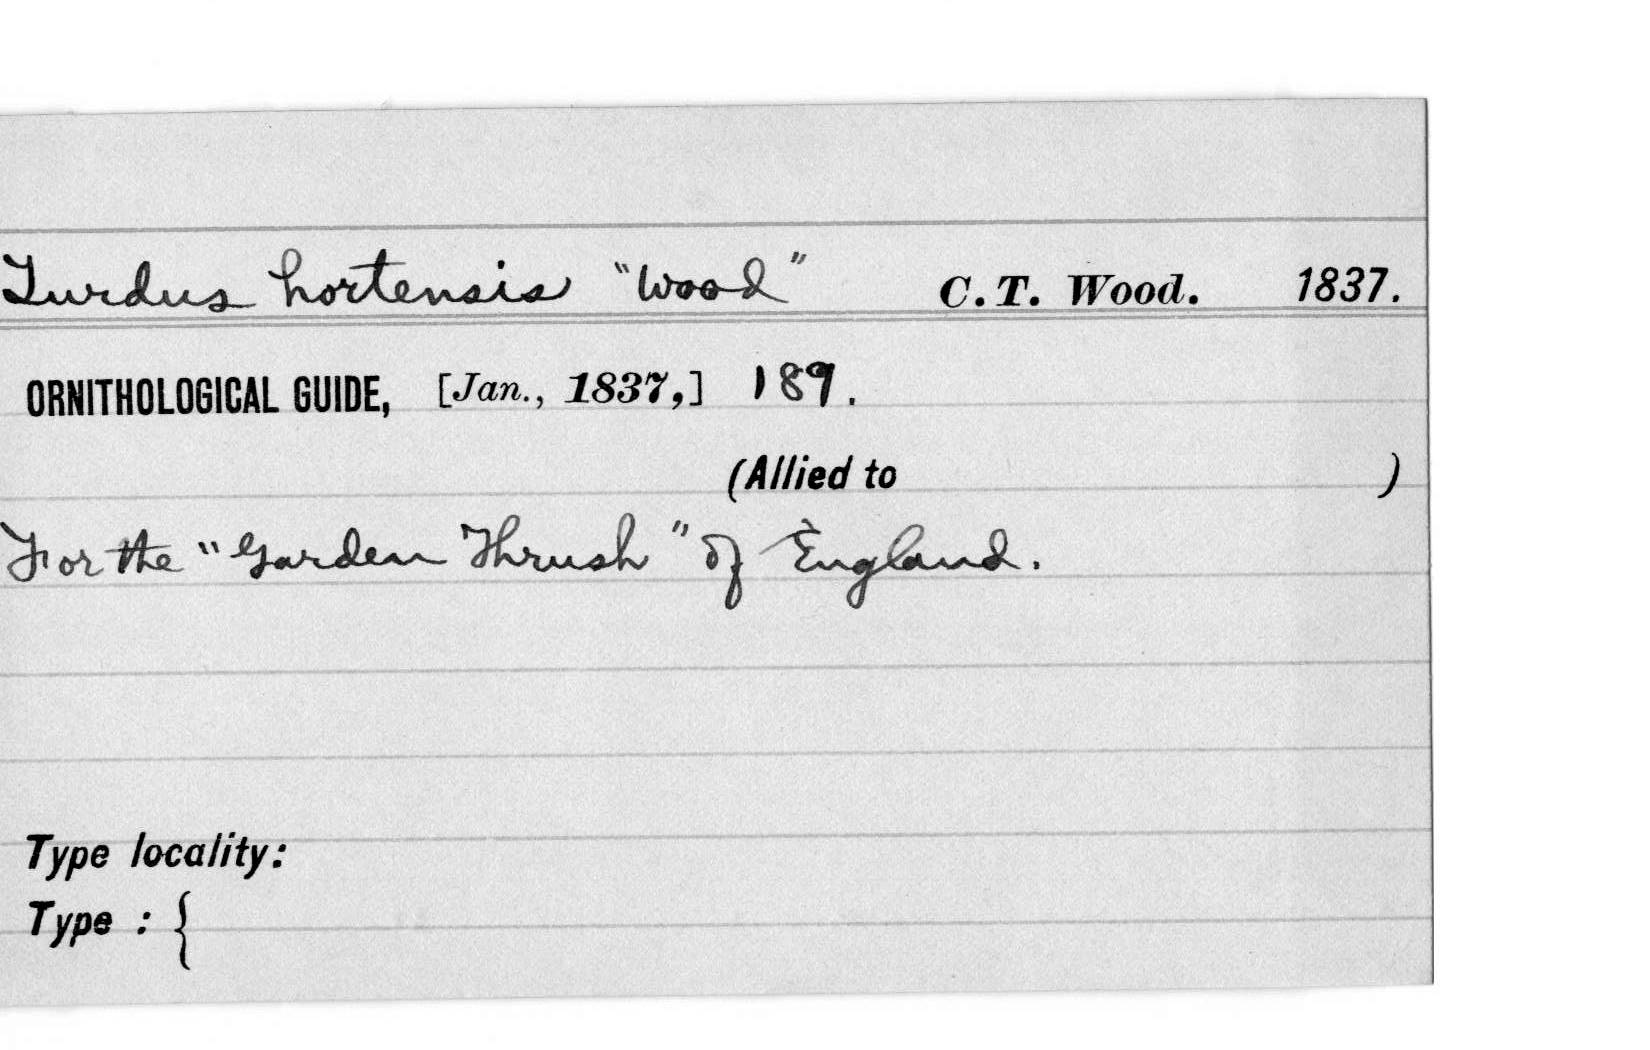 Turdus hortensis "Wood" C. T. Wood. 1837.
ORNITHOLOGICAL GUIDE, [Jan., 1837,] 189.
(Allied to )
For the "Garden Thrush" of England.
Type locality:
Type : {